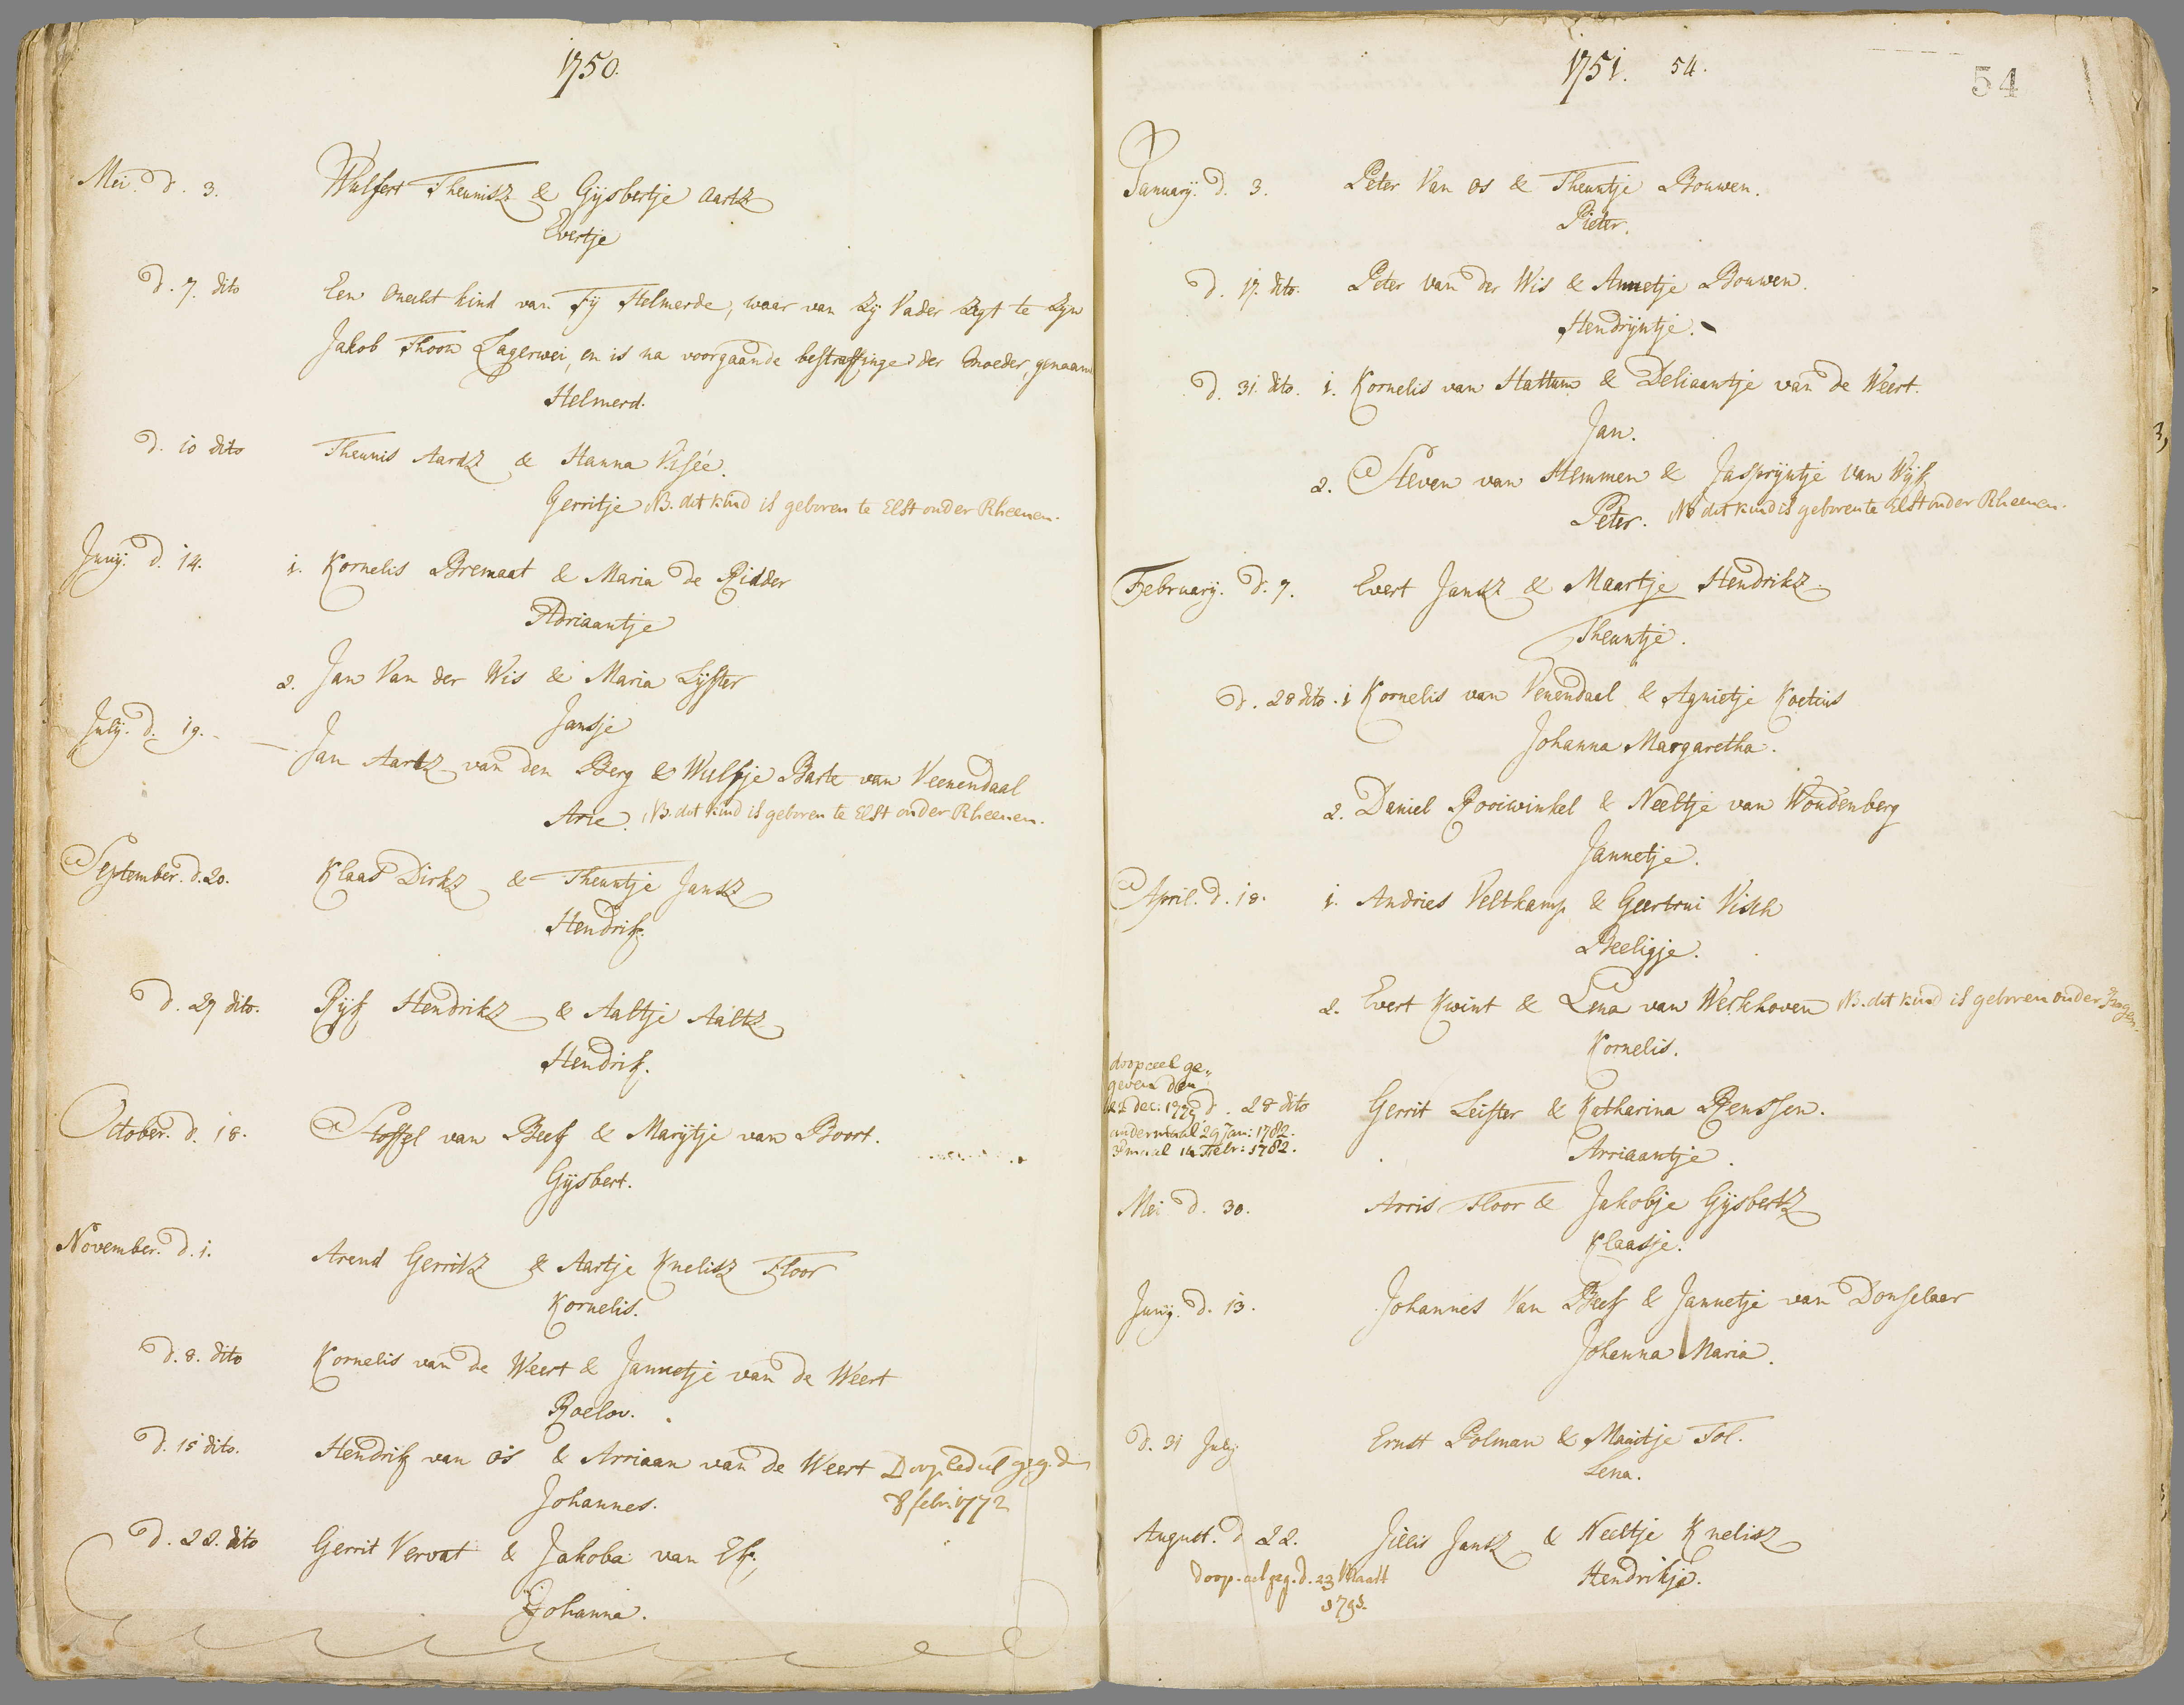 1750.
Mei. d. 3. Wulfert Theunisz & Gijsbertje Aartz
Evertje
d. 7. dito Een onecht kind van Fij Helmerde, waar van zij Vader zegt te zijn
Jakob Thoon Lagerwei, en is na voorgaande bestraffinge der Moeder, genaamt
Helmerd.
d. 10 dito Theunis Aardz & Hanna Visée.
Gerritje NB. dit kind is geboren te Elst onder Rheenen.
Junij. d. 14. 1. Kornelis Bremaat & Maria de Ridder
Adriaantje
2. Jan Van der Wis & Maria Lijster
Jansje
Julij. d. 19. Jan Aartz van den Berg & Wulfje Bartz van Veenendaal
Arie. NB. dit kind is geboren te Elst onder Rheenen.
September. d. 20. Klaas Dirkz & Theuntje Jansz
Hendrik.
d. 27 dito. Rijk Hendrikz & Aaltje Aaltz
Hendrik.
October. d. 18. Stoffel van Beek & Marijtje van Boort.
Gijsbert.
November. d. 1. Arend Gerritz & Aartje Knelisz Floor
Kornelis.
d. 8. dito Kornelis van de Weert & Jannetje van de Weert
Roelov.
d. 15 dito. Hendrik van os & Arriaan van de Weert Doop Cedul geg. d
Johannes. 8 febr: 1772
d. 22. dito Gerrit Vervat & Jakoba van Ek,
Johanna.
1751. 54.
54
January. d. 3. Peter Van os & Theuntje Bouwen.
Pieter.
d. 17. dito. Peter van der Wis & Annetje Bouwen.
Hendrijntje.
d. 31. dito. 1. Kornelis van Hattum & Deliaantje van de Weert.
Jan.
2. Steven van Hemmen & Jasprijntje van Wijk
Peter. NB dit kind is geboren te Elst onder Rheenen.
February. d. 7. Evert Jansz & Maartje Hendrikz
Theuntje.
d. 28 dito. 1 Kornelis van Venendaal & Agnietje Koetius
Johanna Margaretha.
2. Daniel Rooiwinkel & Neeltje van Woudenberg
Jannetje.
April. d. 18. 1. Andries Veltkamp & Geertrui Visch
Beeligje.
2. Evert Kwint & Lena van Werkhoven NB. dit kind is geboren onder
Kornelis.
doopceel ge,,
geven den
22 dec: 1775 d. 28 dito Gerrit Leister & Katharina Renssen.
andermaal 29 Jan: 1782.
3maal 14 Febr: 1782. Arriaantje.
Mei d. 30. Arris Floor & Jakobje Gijsbertz
Klaasje.
Junij. d. 13. Johannes Van Beek & Jannetje van Donselaer
Johanna Maria.
d. 31 July Ernst Polman & Maritje Tol.
Lena.
August. d 22. Jillis Jansz & Neeltje Knelisz
doop.cel geg. d. 23 Maart Hendrikje.
1795.